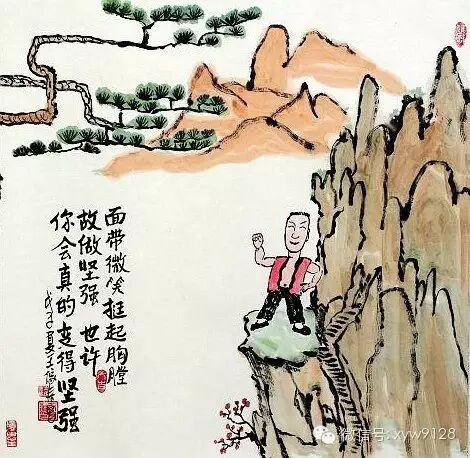 面带微笑挺起胸膛
故做坚强 也许
你会真的变得坚强
戊子夏王
微信号: xyw9128